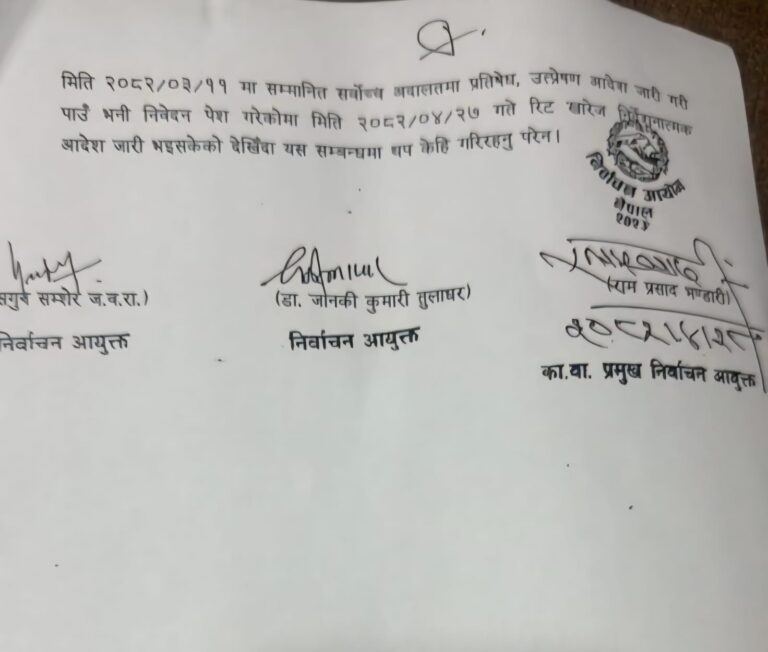 मिति २०८२/०३/११ मा सम्मानित सर्वोच्च अदालतमा प्रतिषेध, उत्प्रेषण आदेश जारी गरी
पाउँ भनी निवेदन पेश गरेकोमा मिति २०८२/०४/२७ गते रिट खारेज
आदेश जारी भइसकेको देखिँदा यस सम्बन्धमा थप केहि गरिरहनु परेन।
निर्वाचन आयोग
नेपाल
सम्शेर ज.ब.रा.)
(डा. जानकी कुमारी तुलाधर)
(राम प्रसाद भण्डारी)
निर्वाचन आयुक्त
निर्वाचन आयुक्त
२०८२।४।२८
का.वा. प्रमुख निर्वाचन आयुक्त